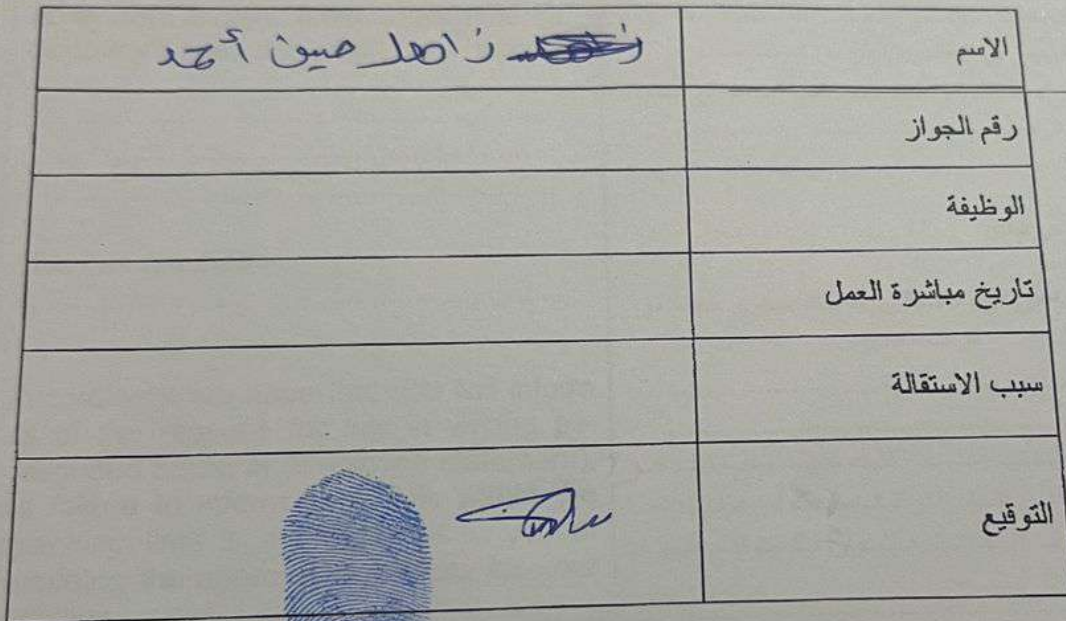 الاسم زاهد حسين أحمد
رقم الجواز
الوظيفة
تاريخ مباشرة العمل
سبب الاستقالة
التوقيع